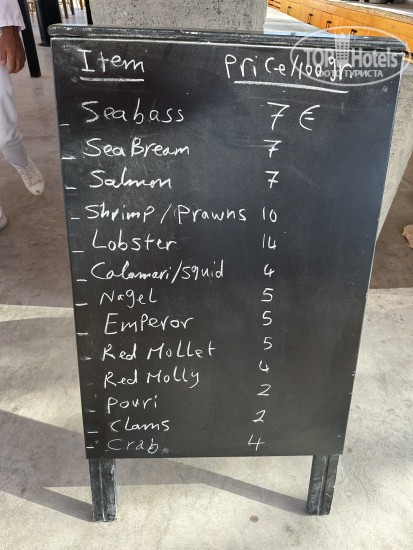 TopHotels
ФОТО ТУРИСТА
Item Price/100gr
Seabass 7 €
Sea Bream 7
Salmon 7
Shrimp/Prawns 10
Lobster 14
Calamari/squid 4
Nagel 5
Emperor 5
Red Mollet 5
Red Molly 4
Pouri 2
Clams 2
Crab 4